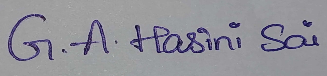 G. A. Hasini Sai